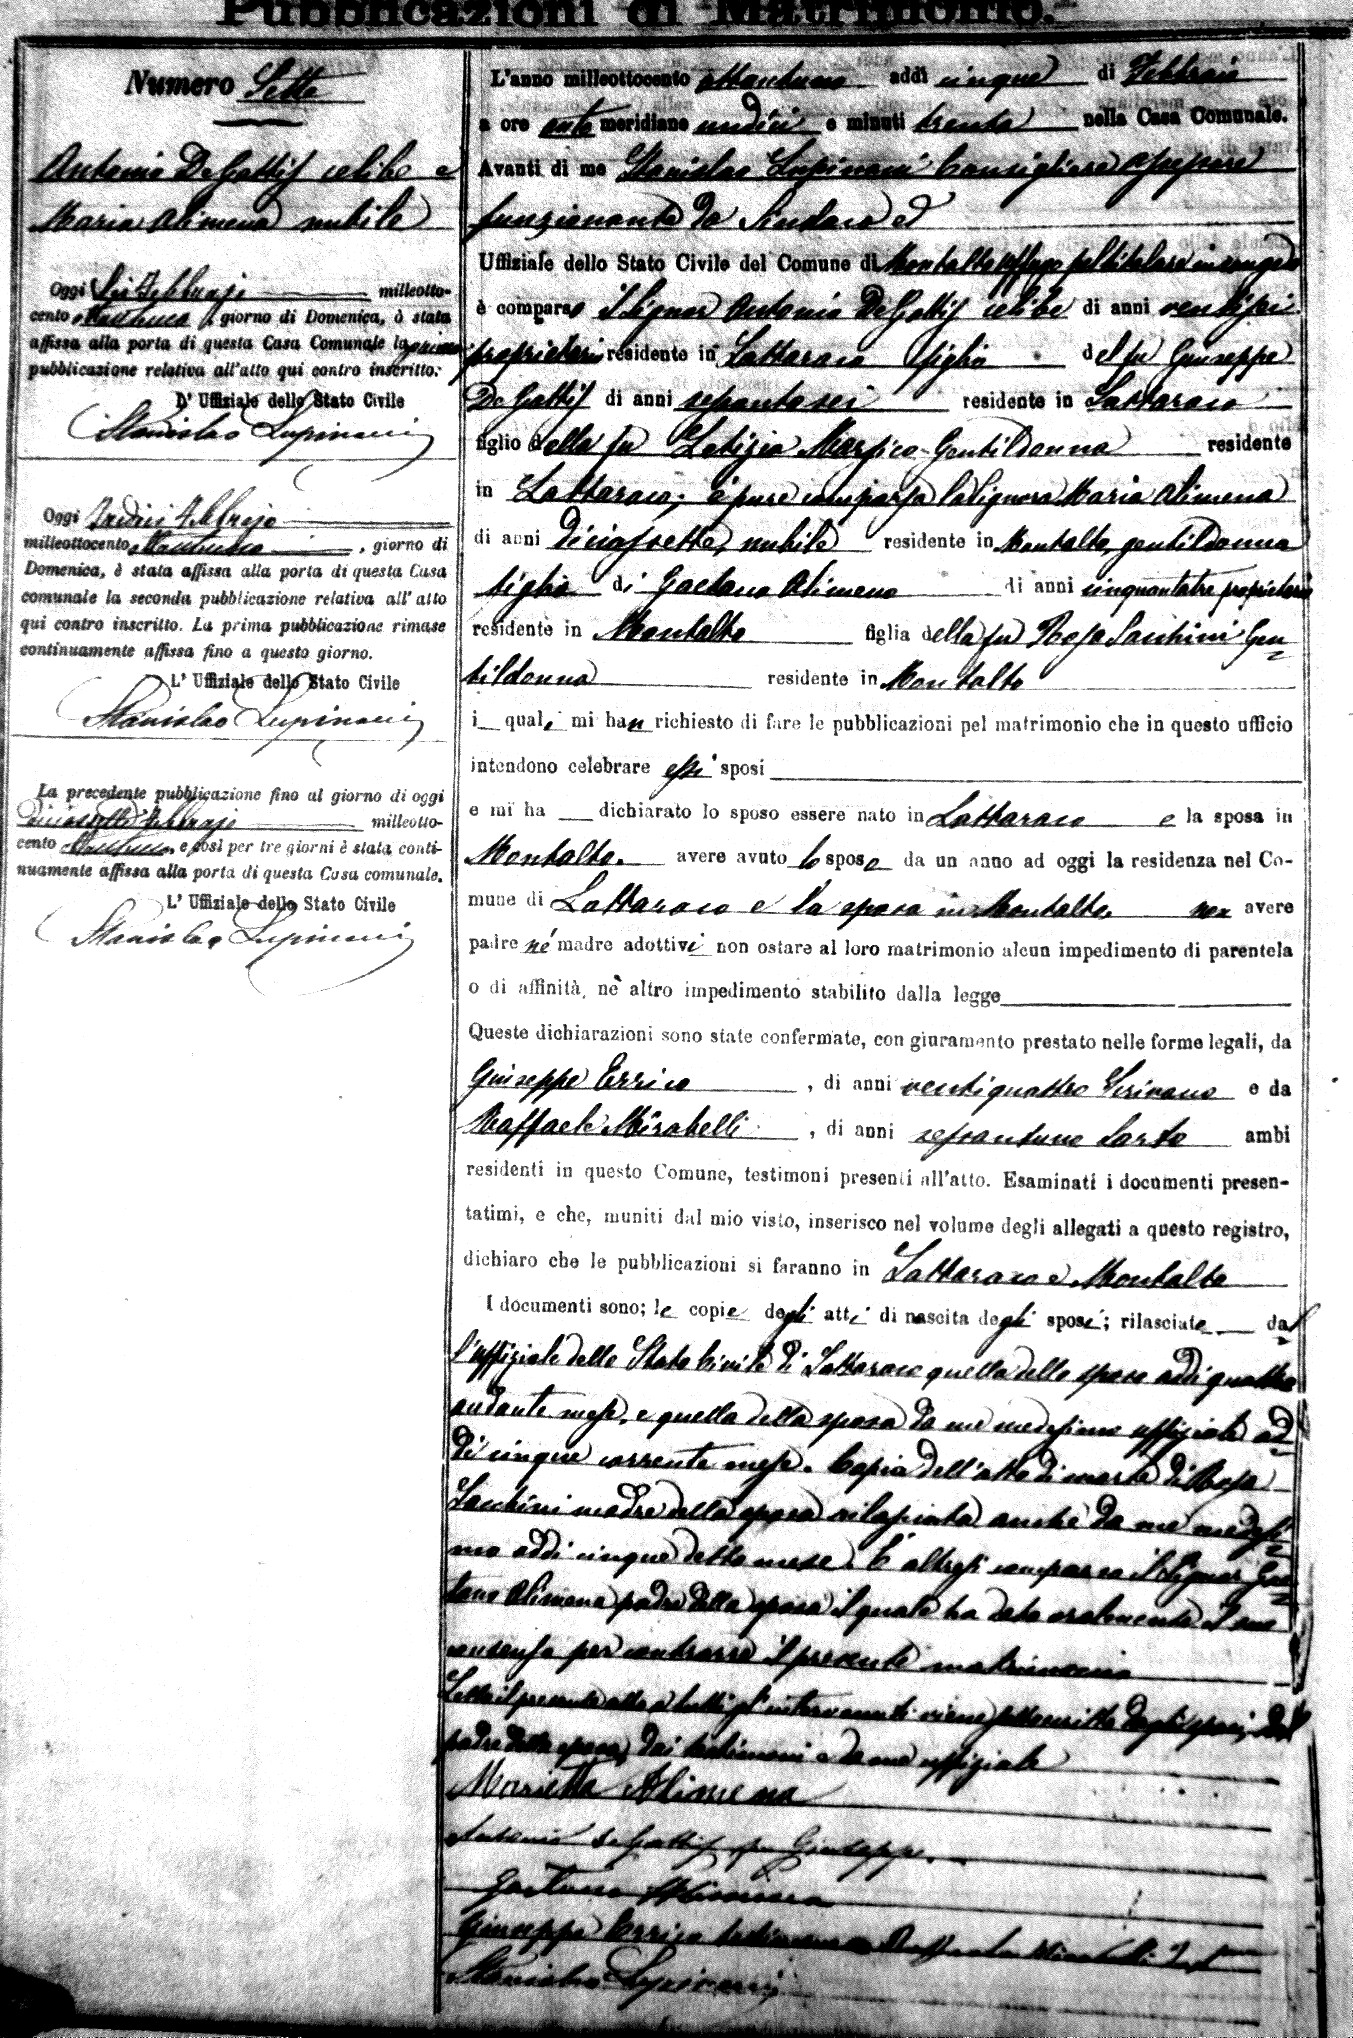 Pubblicazioni di Matrimonio.
Numero Sette
Antonio De Gattis celibe e
Maria Alimena nubile
Oggi Sei Febbrajo milleotto-
cento ottantuno, giorno di Domenica, è stata
affissa alla porta di questa Casa Comunale la prima
pubblicazione relativa all'atto qui contro inscritto.
L' Uffiziale dello Stato Civile
Stanislao Lupinacci
Oggi Tredici Febbrajo
milleottocento ottantuno, giorno di
Domenica, è stata affissa alla porta di questa Casa
comunale la seconda pubblicazione relativa all' atto
qui contro inscritto. La prima pubblicazione rimase
continuamente affissa fino a questo giorno.
L' Uffiziale dello Stato Civile
Stanislao Lupinacci
La precedente pubblicazione fino al giorno di oggi
Febbrajo milleotto-
cento ottantuno, e così per tre giorni è stata conti-
nuamente affissa alla porta di questa Casa comunale.
L' Uffiziale dello Stato Civile
Stanislao Lupinacci
L'anno milleottocento ottantuno addì cinque di Febbraio
a ore ante meridiane undici e minuti trenta nella Casa Comunale.
Avanti di me Stanislao Lupinacci Consigliere assessore
funzionante da Sindaco ed
Uffiziale dello Stato Civile del Comune di Montalto Uffugo pel titolare in congedo
è comparso il Signor Antonio De Gattis celibe di anni ventisei
proprietario residente in Lattaraco figlio del fu Giuseppe
De Gattis di anni sessantasei residente in Lattaraco
figlio della fu Letizia Marsico Gentildonna residente
in Lattaraco; è pure comparsa la Signora Maria Alimena
di anni diciassette, nubile residente in Montalto, gentildonna
figlia di Gaetano Alimena di anni cinquantatre proprietario
residente in Montalto figlia della fu Rosa Santini Gen
tildonna residente in Montalto
i quali mi han richiesto di fare le pubblicazioni pel matrimonio che in questo ufficio
intendono celebrare essi sposi
e mi ha dichiarato lo sposo essere nato in Lattaraco e la sposa in
Montalto. avere avuto lo sposo da un anno ad oggi la residenza nel Co-
mune di Lattaraco e la sposa in Montalto. non avere
padre né madre adottivi non ostare al loro matrimonio alcun impedimento di parentela
o di affinità, nè altro impedimento stabilito dalla legge
Queste dichiarazioni sono state confermate, con giuramento prestato nelle forme legali, da
Giuseppe Errico, di anni ventiquattro Scrivano e da
Raffaele Mirabelli, di anni sessantuno Sarto ambi
residenti in questo Comune, testimoni presenti all'atto. Esaminati i documenti presen-
tatimi, e che, muniti dal mio visto, inserisco nel volume degli allegati a questo registro,
dichiaro che le pubblicazioni si faranno in Lattaraco e Montalto
I documenti sono; le copie degli atti di nascita degli sposi; rilasciate dal
l'uffiziale dello Stato Civile di Lattaraco quella dello sposo addì quattro
andante mese, e quella della sposa da me medesimo uffiziale ad
dì cinque corrente mese. Copia dell'atto di morte di Rosa
Santini madre della sposa rilasciata anche da me medesi
mo addì cinque detto mese. È altresì comparso il Signor Gae
tano Alimena padre della sposa il quale ha dato oralmente il suo
consenso per contrarre il presente matrimonio
Letto il presente atto a tutti gl'intervenuti viene sottoscritto dagli sposi, dal
padre della sposa, dai testimoni e da me uffiziale
Marietta Alimena
Antonio de Gattis fu Giuseppe
Gaetano Alimena
Giuseppe Errico testimone Raffaele Mirabelli Test
Stanislao Lupinacci